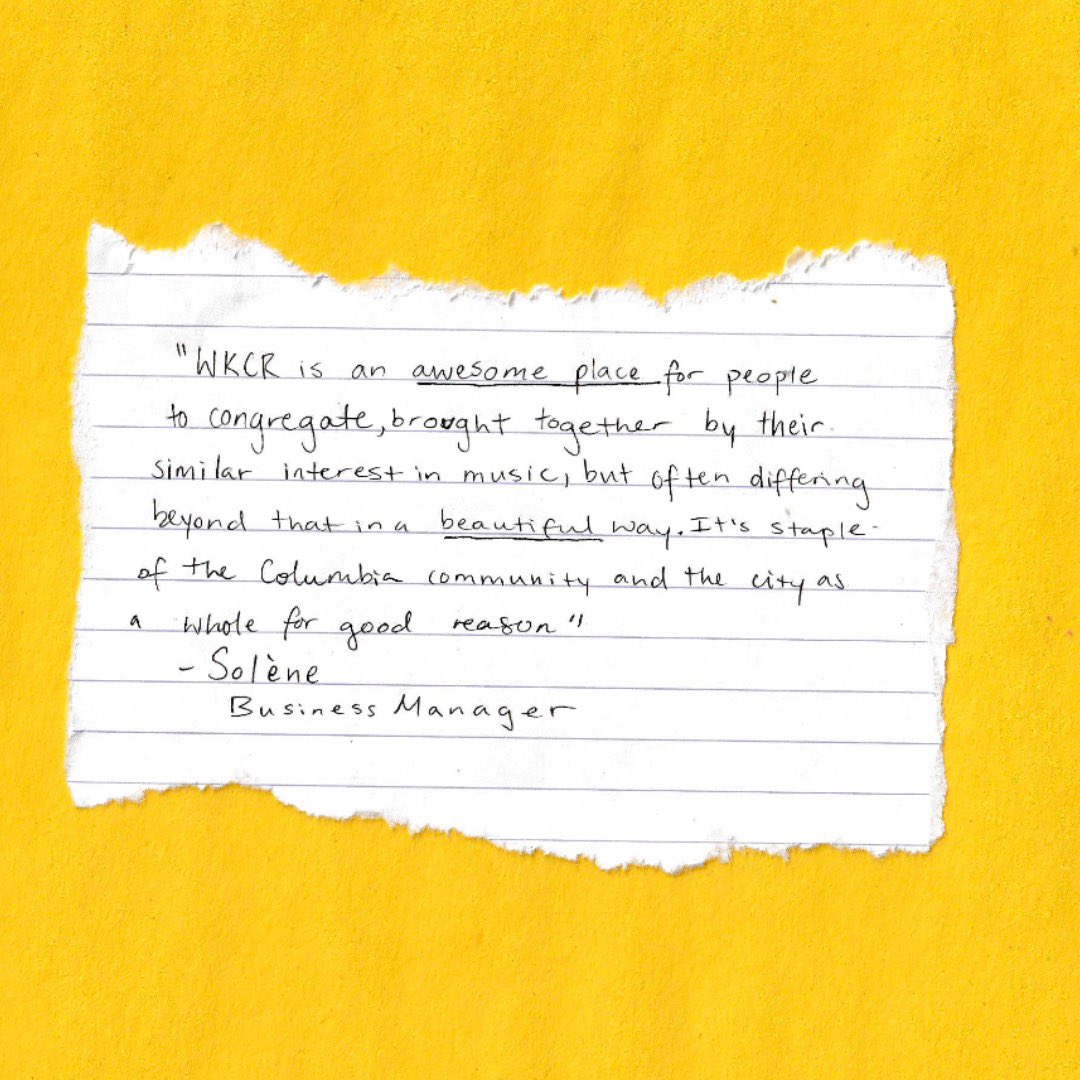 "WKCR is an awesome place for people
to congregate, brought together by their
similar interest in music, but often differing
beyond that in a beautiful way. It's staple
of the Columbia community and the city as
a whole for good reason"
- Solène
Business Manager